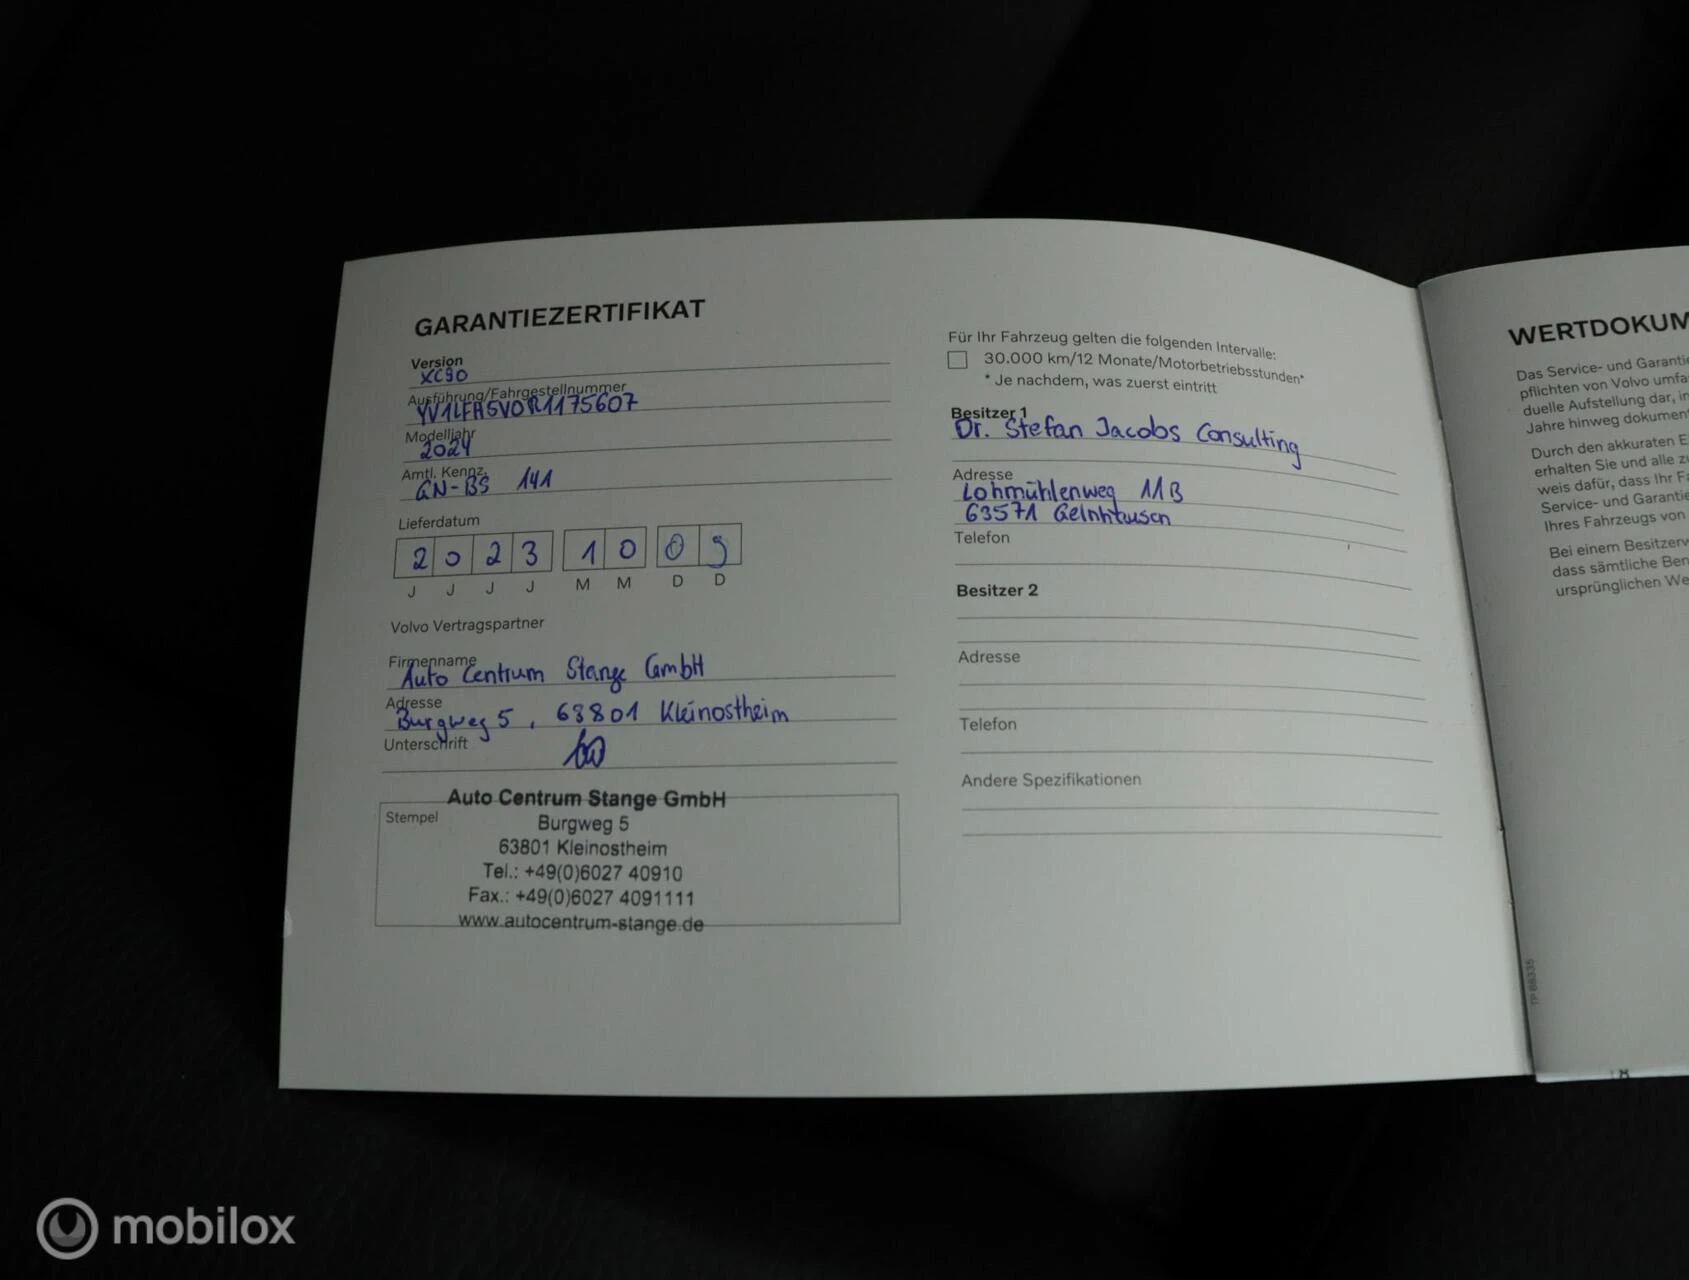 GARANTIEZERTIFIKAT
Version
XC90
Ausführung/Fahrgestellnummer
YV1LFH5V0R1175607
Modelljahr
2024
Amtl. Kennz.
GN-BS 141
Lieferdatum
2 0 2 3 1 0 0 9
J J J J M M D D
Volvo Vertragspartner
Firmenname
Auto Centrum Stange GmbH
Adresse
Burgweg 5, 63801 Kleinostheim
Unterschrift
Stempel
Auto Centrum Stange GmbH
Burgweg 5
63801 Kleinostheim
Tel.: +49(0)6027 40910
Fax.: +49(0)6027 4091111
www.autocentrum-stange.de
Für Ihr Fahrzeug gelten die folgenden Intervalle:
30.000 km/12 Monate/Motorbetriebsstunden*
* Je nachdem, was zuerst eintritt
Besitzer 1
Dr. Stefan Jacobs Consulting
Adresse
Lohmühlenweg 11B
63571 Gelnhausen
Telefon
Besitzer 2
Adresse
Telefon
Andere Spezifikationen
WERTDOKUM
Das Service- und Garantie
pflichten von Volvo umfa
duelle Aufstellung dar, in
Jahre hinweg dokument
Durch den akkuraten E
erhalten Sie und alle zu
weis dafür, dass Ihr Fa
Service- und Garantie
Ihres Fahrzeugs von
Bei einem Besitzerw
dass sämtliche Ben
ursprünglichen We
TP 88335
mobilox